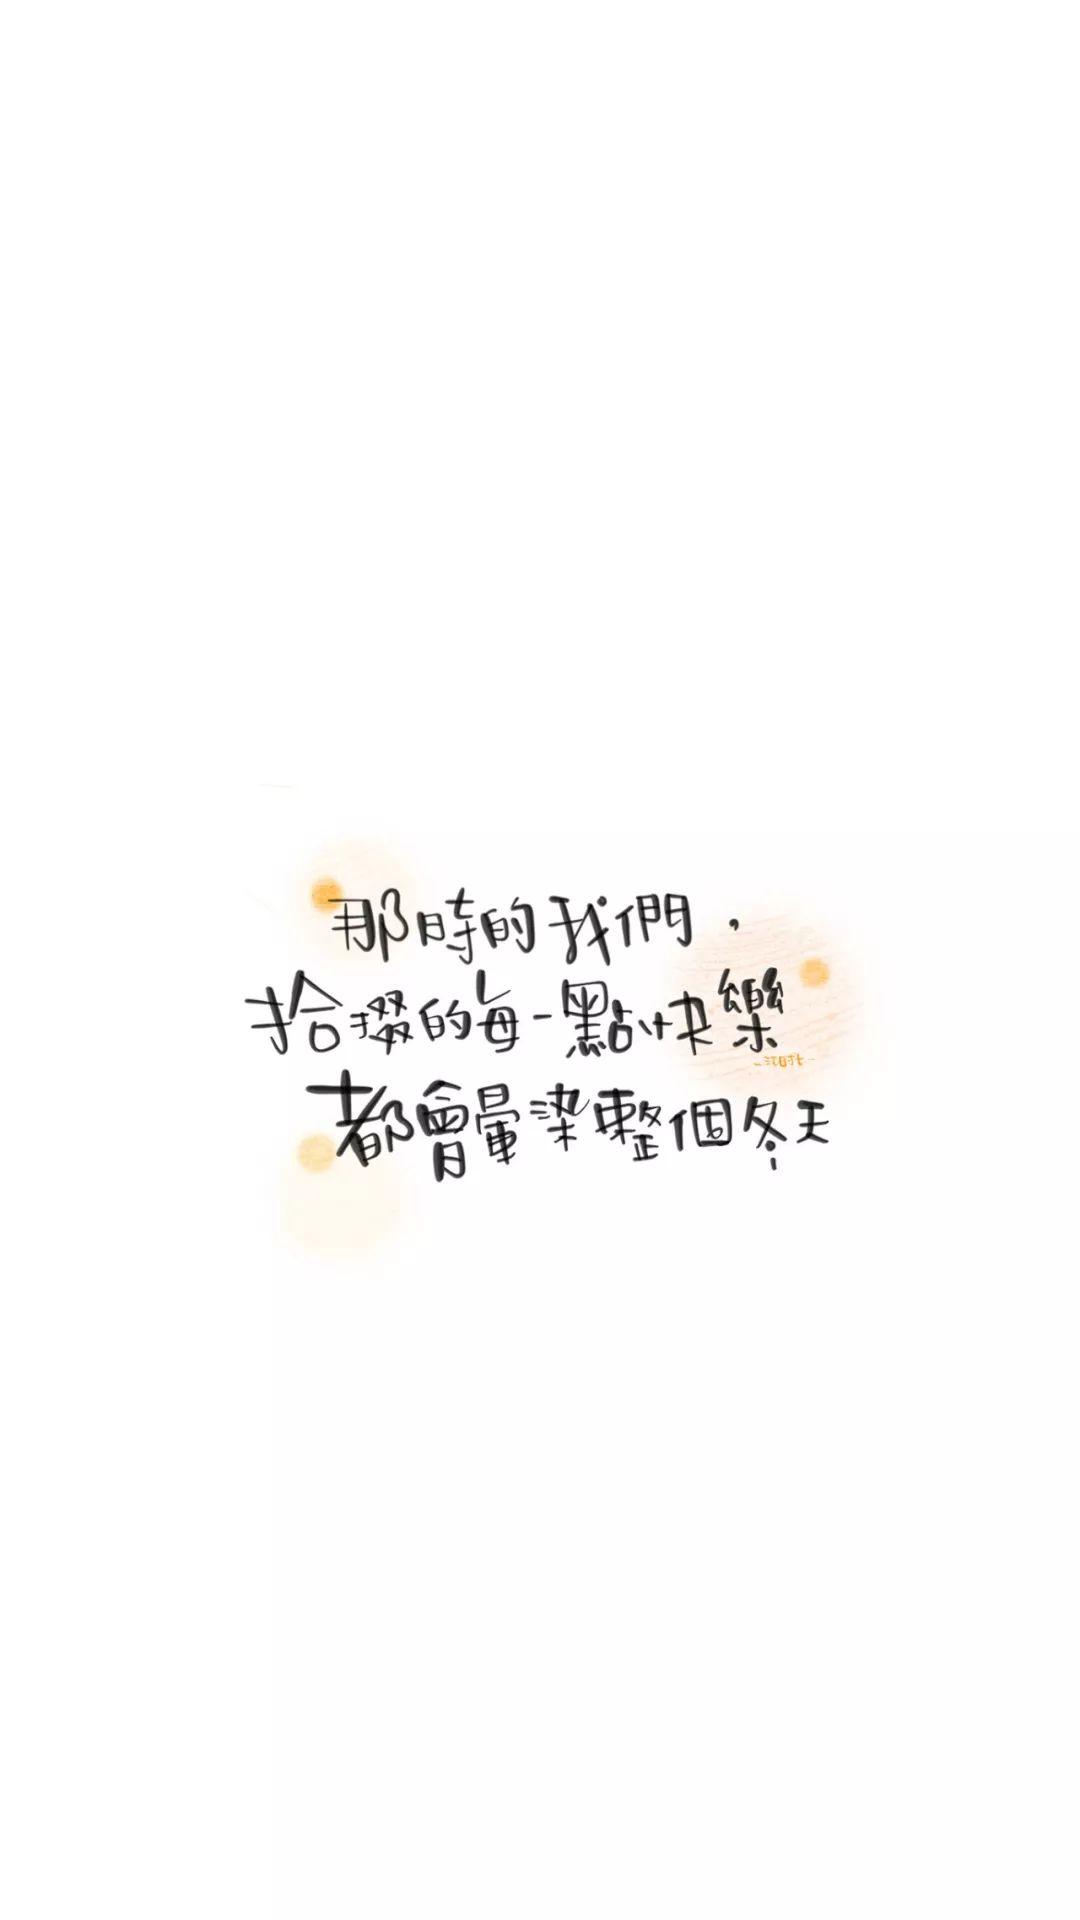 那時的我們，
拾掇的每一點快樂
都會暈染整個冬天